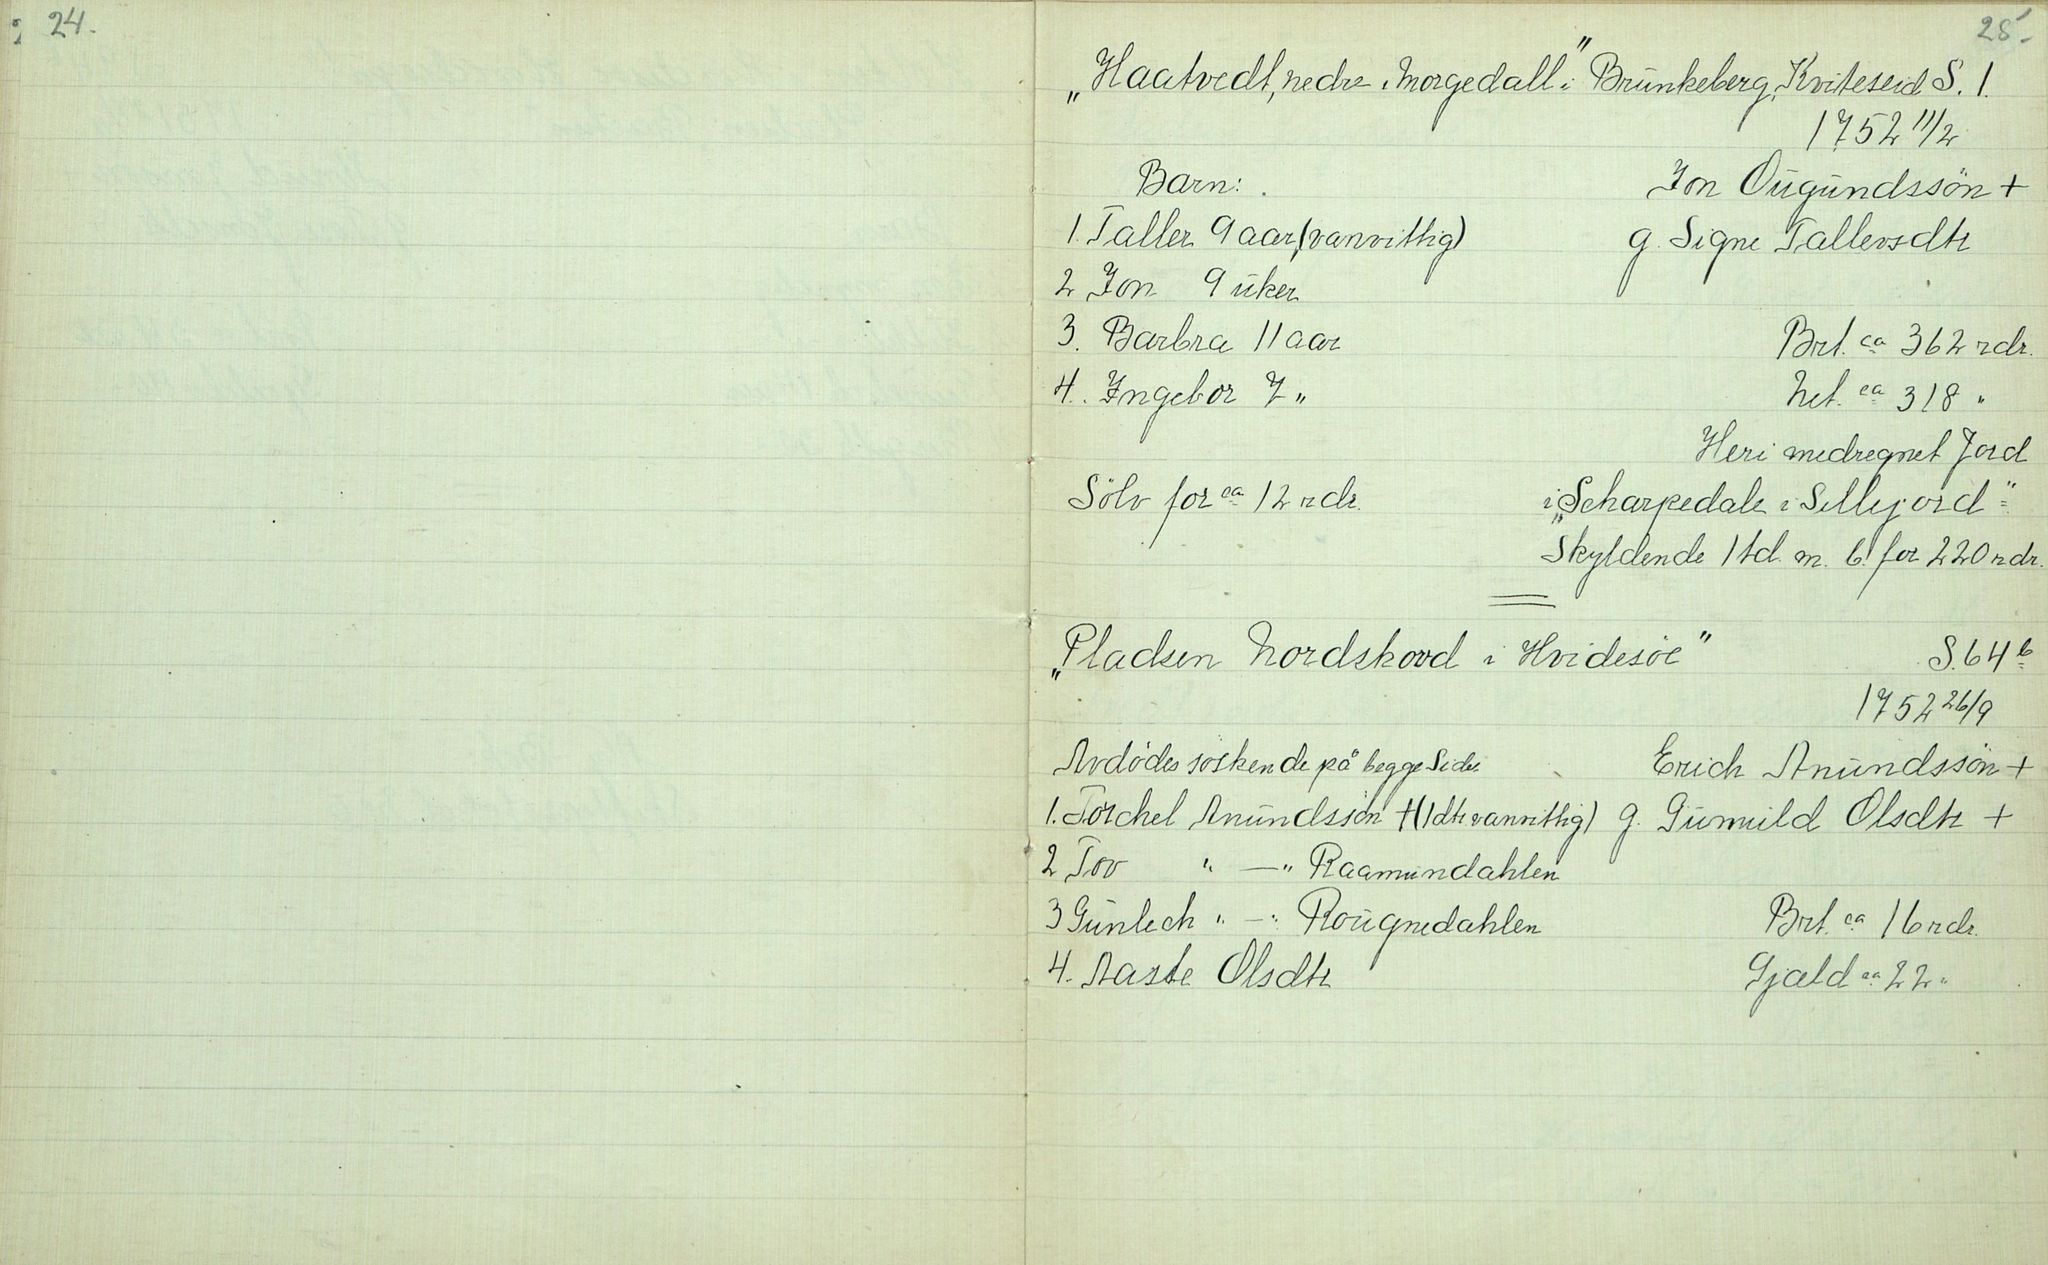 24.
25.
„Haatvedt, nedre i Morgedall" i Brūnkeberg, Kviteseid S. 1.
1752 11/2
Barn: Jon Oūgūndssön +
1. Taller 9 aar, (vanvittig) g. Signe Tallevsdtr
2 Jon 9 ūker
3. Barbra 11 aar Brt. ca 362 rdr.
4. Ingebor 7 „ Net. ca 318 „
Heri medregnet Jord
Sölv for ca 12 rdr. i „Scharpedale i Sillejord"
Skyldende 1 td. m. b. for 220 rdr.
„Pladsen Nordskovd i Hvidesöe" S. 64 b
1752 26/9
Avdödes söskende på begge Sider Erich Anūndssön +
1. Torchel Anūndssön + (1 dtr vanvittig) g. Gūnnild Olsdtr +
2 Tov „ —„ Raamundahlen
3 Gūnlech „ —„ Roūgnedahlen Brt. ca 16 rdr.
4. Aaste Olsdtr Gjæld ca 22 „